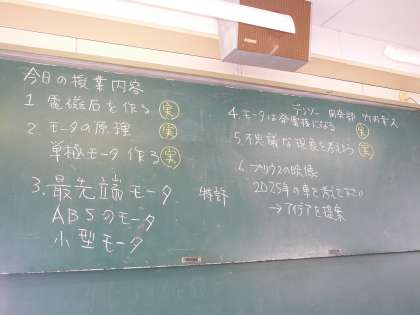 今日の授業内容
1 電磁石を作る 実
2. モータの原理 実
単極モータ作る 実
3. 最先端モータ 特許
ABSのモータ
小型モータ
デンソー 開発部
4. モータは発電機になる 実
5. 不思議な現象を考えよう 実
6. プリウスの映像
2025年の車を考えて
→アイデアを提案